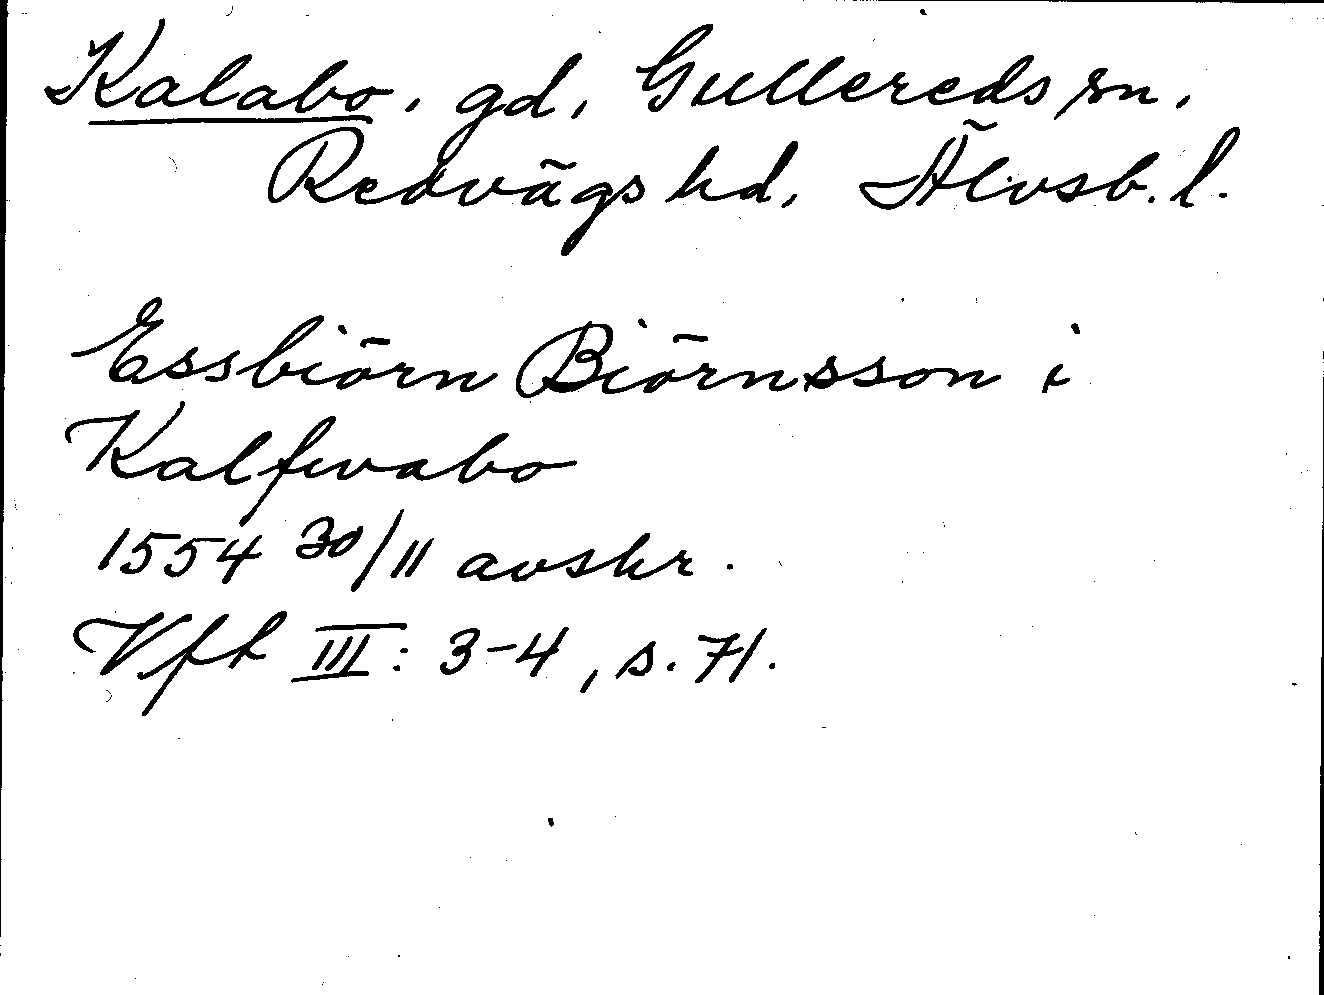 Kalabo, gd, Gullereds sn,
Redvägs hd, Älvsb. l.
Essbiörn Biörnsson i
Kalfwabo
1554 30/11 avskr.
Vfh III: 3-4, s. 71.